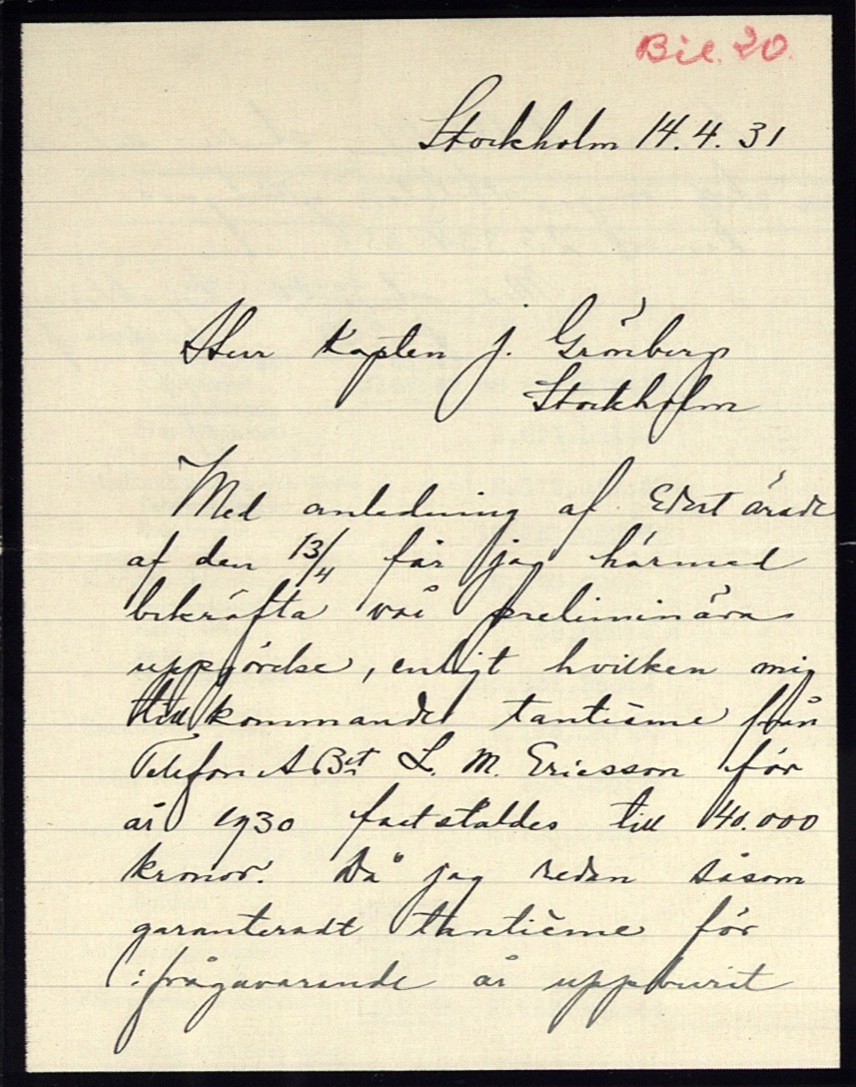 Bil. 20.
Stockholm 14.4.31
Herr Kapten J. Grönberg
Stockholm
Med anledning af Edert ärade
af den 13/4 får jag härmed
bekräfta vår preliminära
uppgörelse, enligt hvilken mig
tillkommande tantième från
Telefon A Bet L. M. Ericsson för
år 1930 fastställdes till 40.000
kronor. Då jag redan såsom
garanteradt tantième för
ifrågavarande år uppburit